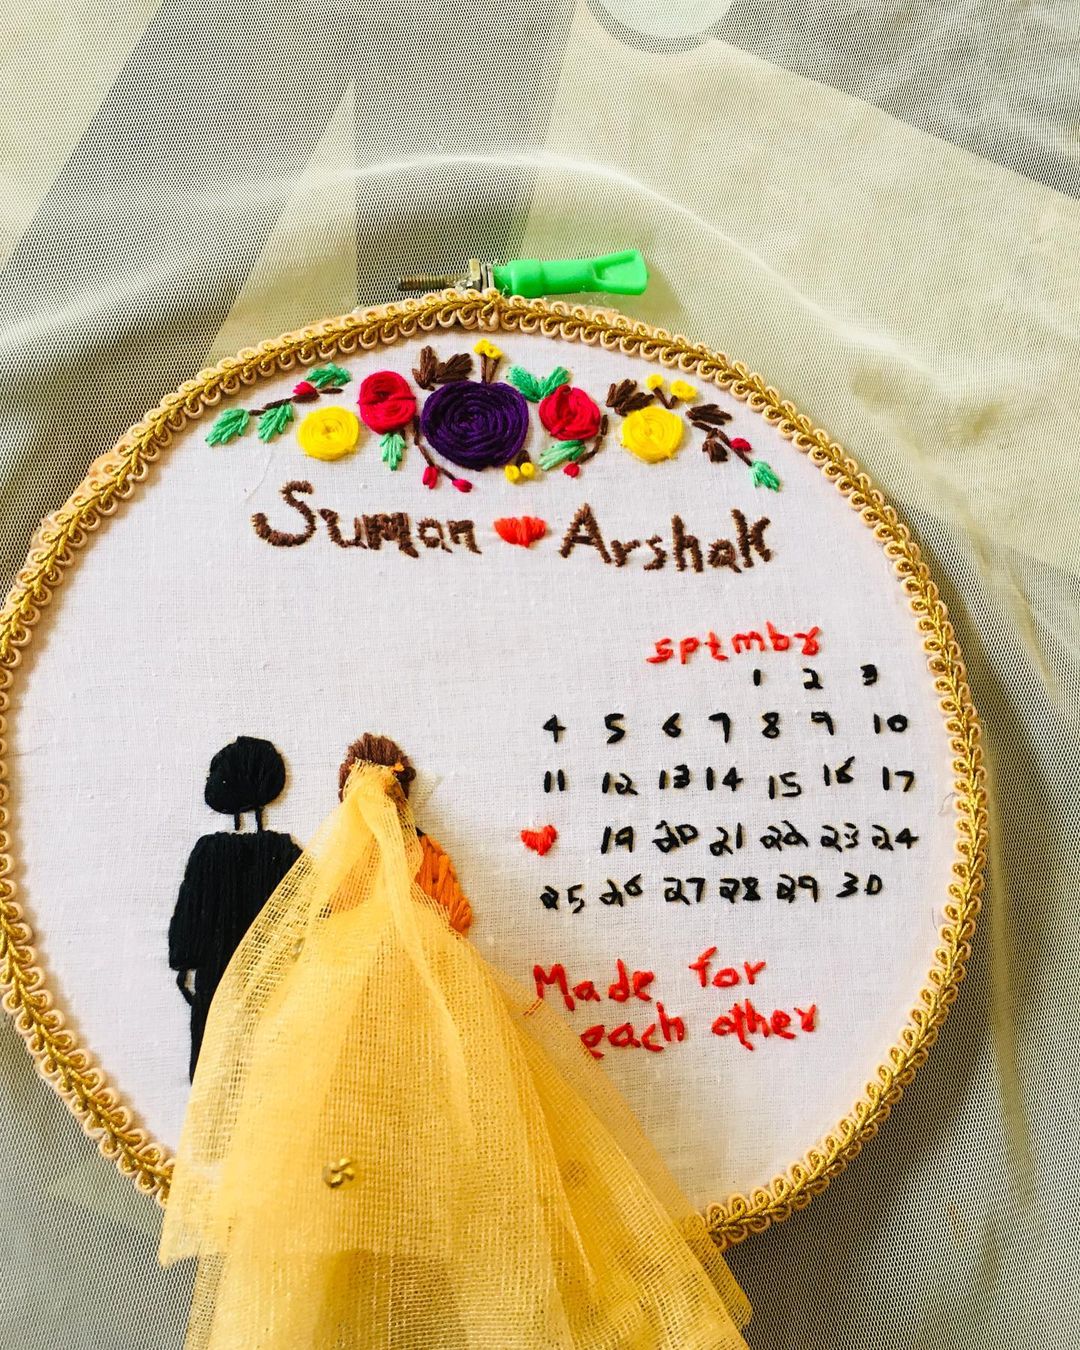 Suman ❤ Arshak
sptmbr
1 2 3
4 5 6 7 8 9 10
11 12 13 14 15 16 17
❤ 19 20 21 22 23 24
25 26 27 28 29 30
Made for
each other